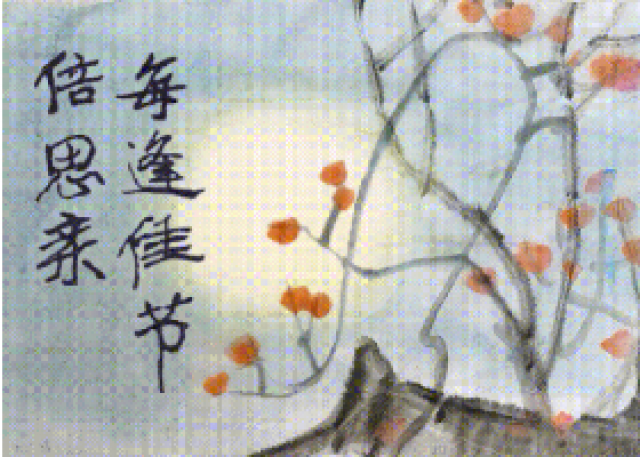 每逢佳节
倍思亲